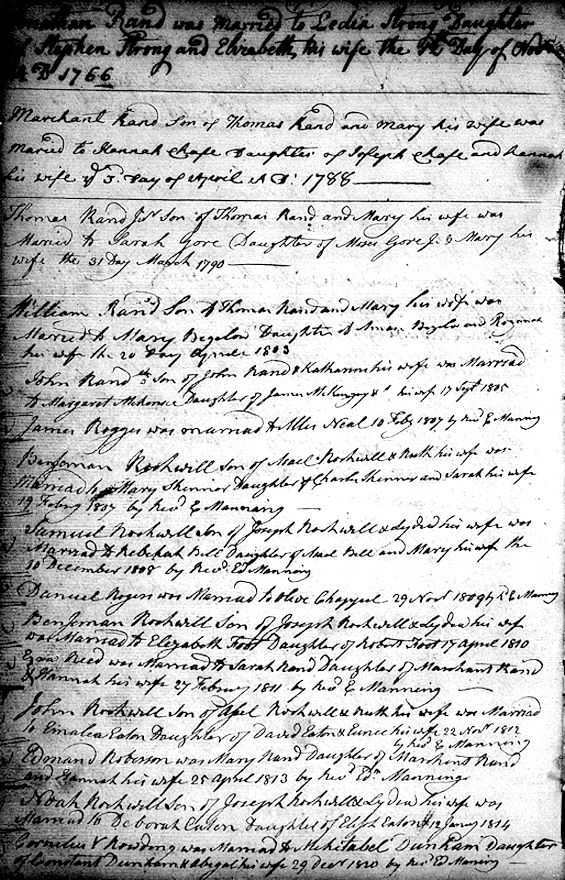 Rand was Married to Ledia Strong Daughter
of Stephen Strong and Elizabeth, his wife the 9th Day of Novr
A D 1766
Marchant Rand Son of Thomas Rand and Mary his wife was
Maried to Hannah Chase Daughter of Joseph Chase and Hannah
his wife ye 3d Day of April A D: 1788
Thomas Rand Junr Son of Thomas Rand and Mary his wife was
Maried to Sarah Gore Daughter of Moses Gore & Mary his
wife the 31 Day March 1790
William Rand Son of Thomas Rand and Mary his wife was
Married to Mary Bigelow Daughter of Amasa Bigelow and Roxanna
his wife the 20 Day Aprile 1803
John Rand Son of John Rand & Katharine his wife was Married
to Margaret McKensee Daughter of James McKenzey & his wife 17 Sept 1805
James Rogges was married to Miss Neal 10 Feby 1807 by Revd E Manning
Benjeman Rockwill Son of Asael Rockwill & Ruth his wife was
Married to Mary Skinner Daughter of Charles Skinner and Sarah his wife
19 Febury 1807 by Revd E Manning
Samuel Rockwill Son of Joseph Rockwill & Lydea his wife was
Married to Rebekah Bill Daughter of Asael Bill and Mary his wife the
10 December 1808 by Revd Ed Manning
Danuel Rogers was Married to Olive Chappel 29 Novr 1809 by Rd E Manning
Benjeman Rockwill Son of Joseph Rockwill & Lydea his wife
was Married to Elizabeth Foot Daughter of Robert Foot 17 April 1810
Ezra Reed was Married to Sarah Rand Daughter of Marchant Rand
& Hannah his wife 27 Febury 1811 by Revd E Manning
John Rockwill Son of Asael Rockwill & Ruth his wife was Married
to Emalia Eaton Daughter of David Eaton & Eunice his wife 22 Novr 1812
by Revd E Manning
Edmand Roberson was Mary Rand Daughter of Marchant Rand
and Hannah his wife 25 April 1813 by Revd Edn Manning
Noah Rockwill Son of Joseph Rockwill & Lydea his wife was
Married to Deborah Eaton Daughter of Elish Eaton 12 Janry 1814
Cornelius V Rowding was Married to Mehitabel Dunham Daughter
of Constant Dunham & Abegal his wife 29 Decr 1810 by Revd Ed Maning